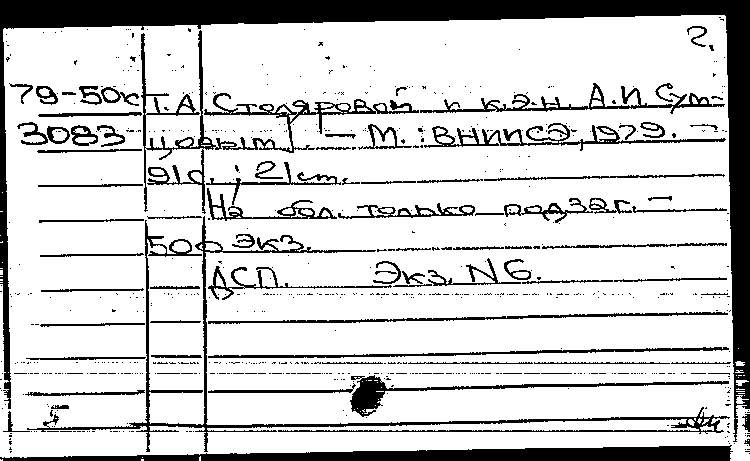 2.
79-50с Т. А. Столяровой и к.э.н. А. И. Сум-
3083 цовым]. — М. : ВНИИСЭ, 1979. —
91 с. ; 21 см.
На обл. только подзаг. —
500 экз.
ДСП. Экз. N 6.
5